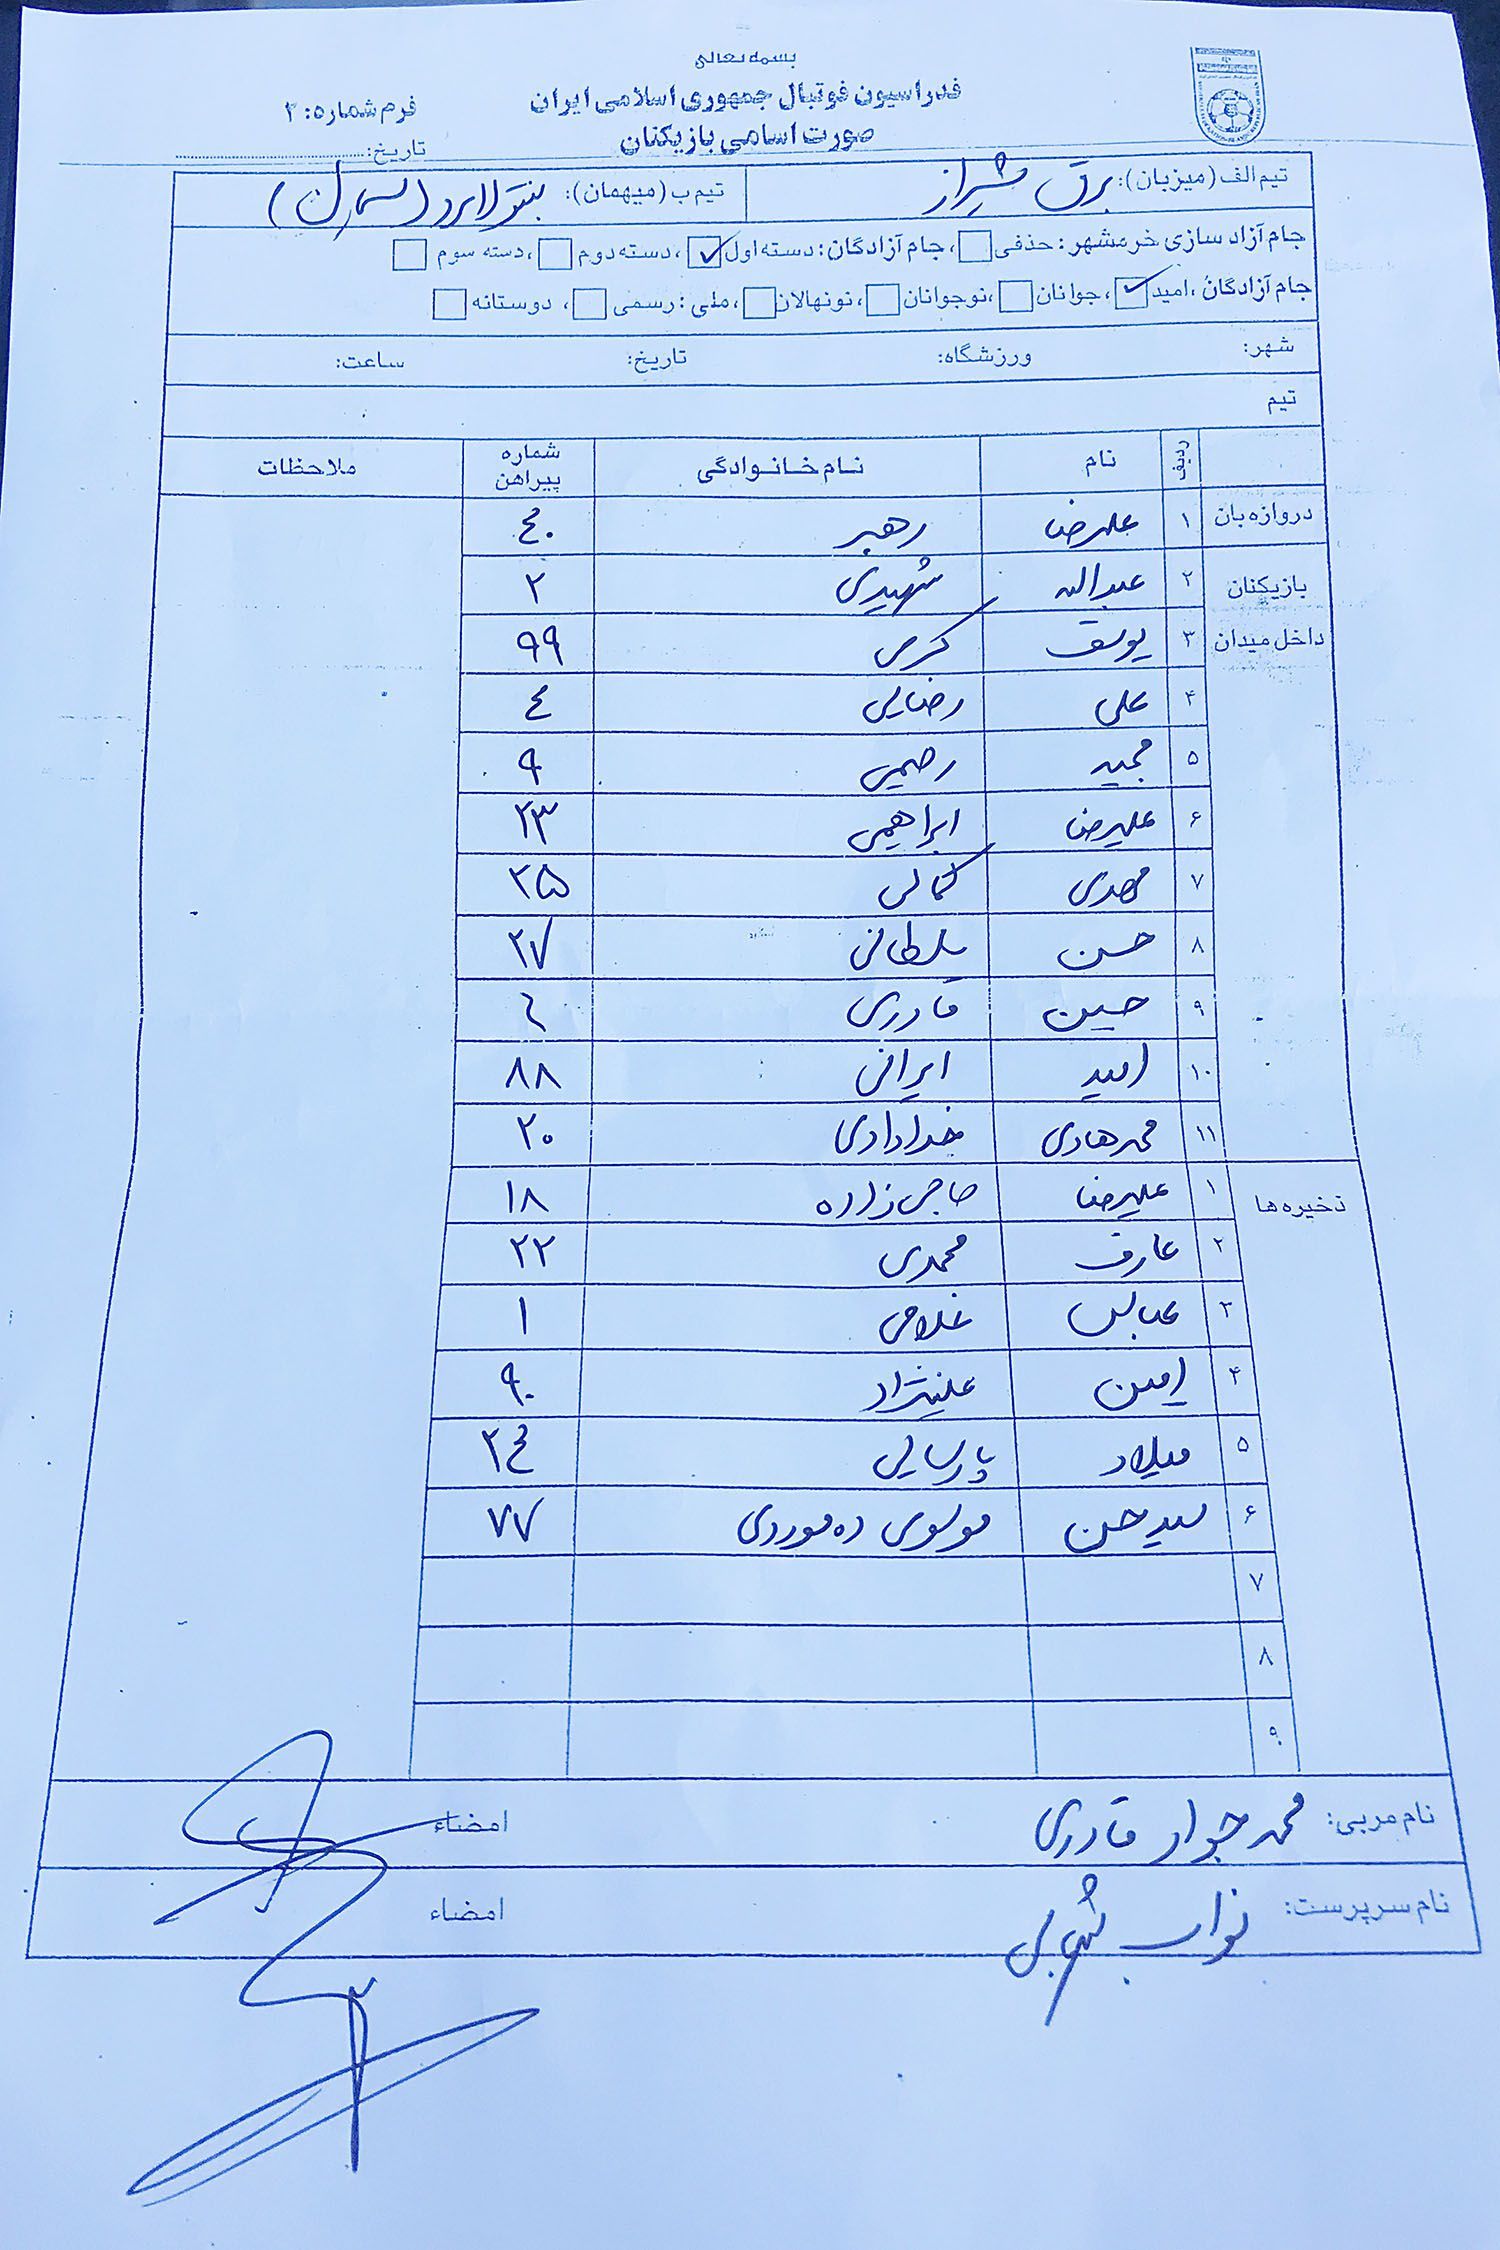 بسمه تعالی
فدراسیون فوتبال جمهوری اسلامی ایران
صورت اسامی بازیکنان
فرم شماره: ۲
تاریخ:
تیم الف (میزبان): برق شیراز تیم ب (میهمان):
جام آزاد سازی خرمشهر: حذفی ، جام آزادگان: دسته اول ، دسته دوم ، دسته سوم
جام آزادگان، امید ، جوانان ، نوجوانان ، نونهالان ، ملی: رسمی ، دوستانه
شهر: ورزشگاه: تاریخ: ساعت:
تیم
ردیف نام نام خانوادگی شماره پیراهن ملاحظات
دروازه بان ۱ علیرضا رهبر ۴۰
بازیکنان ۲ عبداله شهیدی ۲
داخل میدان ۳ یوسف کرمی ۹۹
۴ علی رضایی ۴
۵ مجید رحیمی ۹
۶ علیرضا ابراهیمی ۲۳
۷ مهدی کمالی ۲۵
۸ حسن سلطانی ۲۷
۹ حسین قادری ۶
۱۰ امید ایرانی ۸۸
۱۱ محمدهادی خدادادی ۲۰
ذخیره ها ۱ علیرضا حاجی زاده ۱۸
۲ عارف محمدی ۲۲
۳ عباس غلامی ۱
۴ امین علینژاد ۹۰
۵ میلاد پارسایی ۲۴
۶ سیدحسن موسوی ده موردی ۷۷
۷
۸
۹
نام مربی: محمد جواد قادری امضاء
نام سرپرست: نواب شهابی امضاء